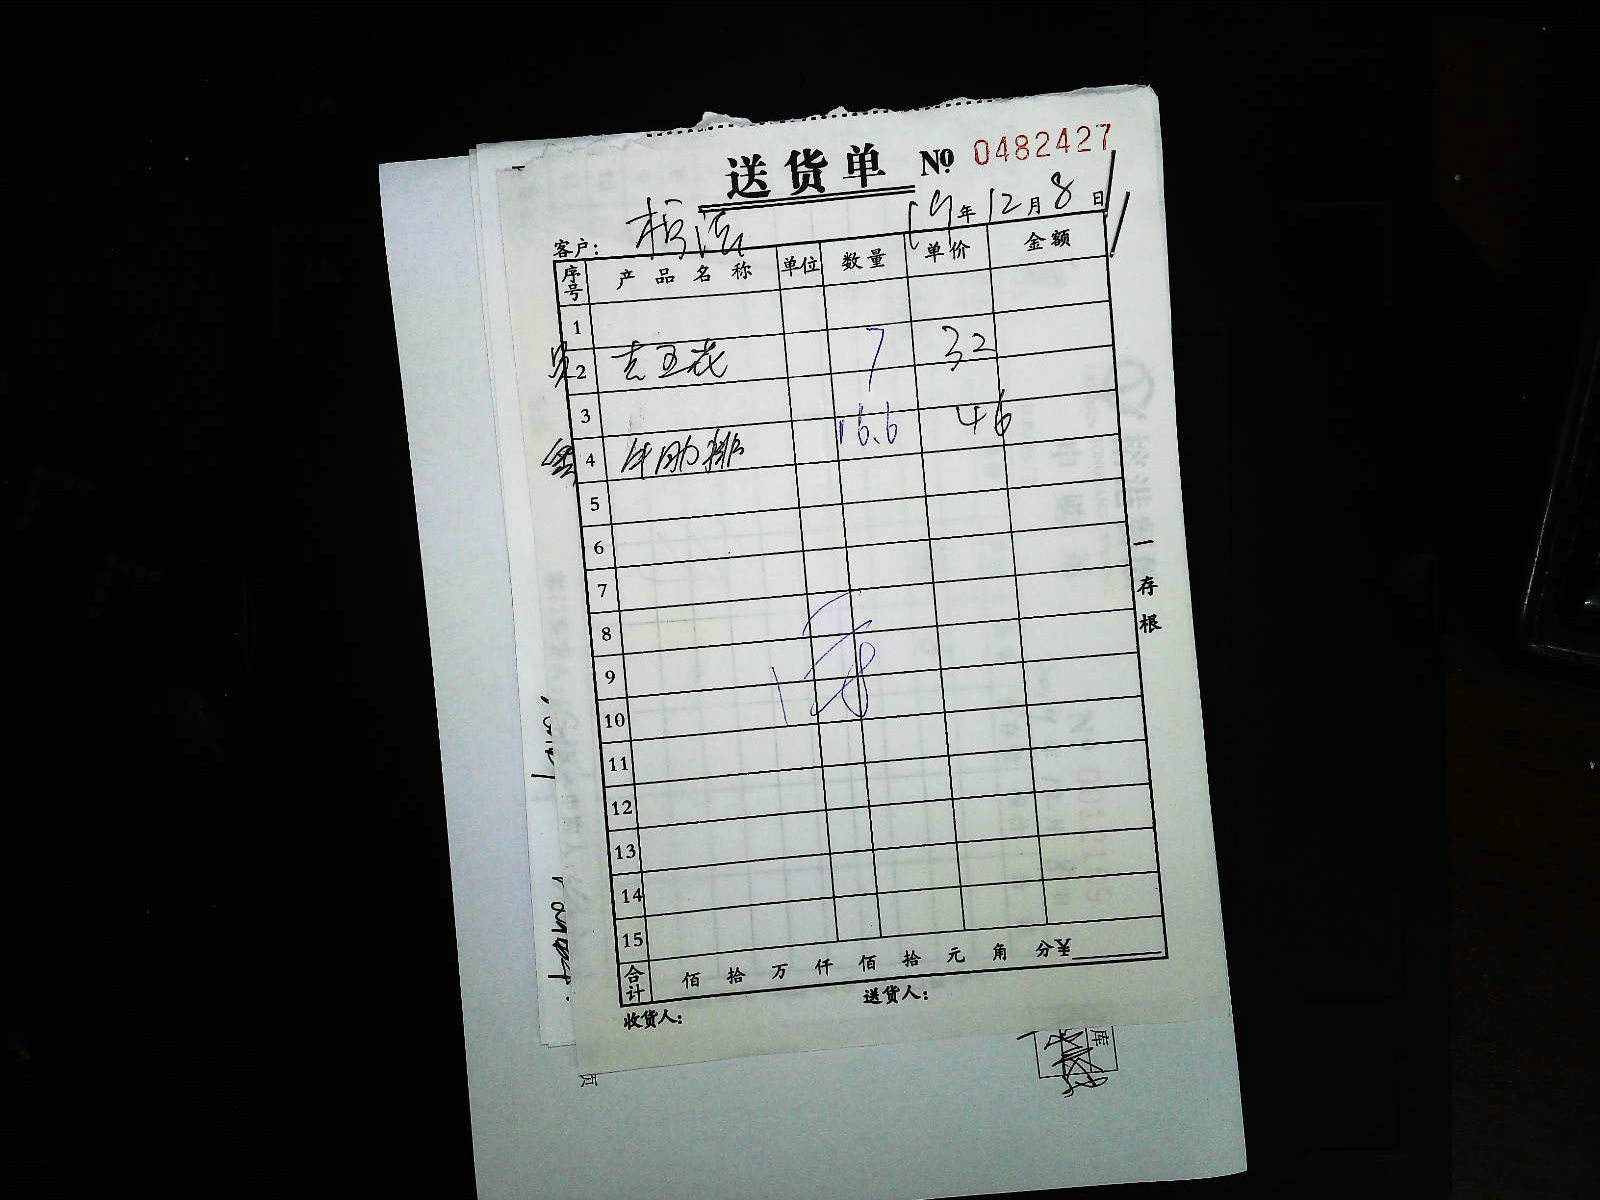 送货单 № 0482427
客户： 19年12月8日
序号 产品名称 单位 数量 单价 金额
1
2 7 32
3
4 牛肋排 16.6 46
5
6
7
8
9
10
11
12
13
14
15
合计 佰 拾 万 仟 佰 拾 元 角 分 ¥
收货人： 送货人：
一存根
库
页